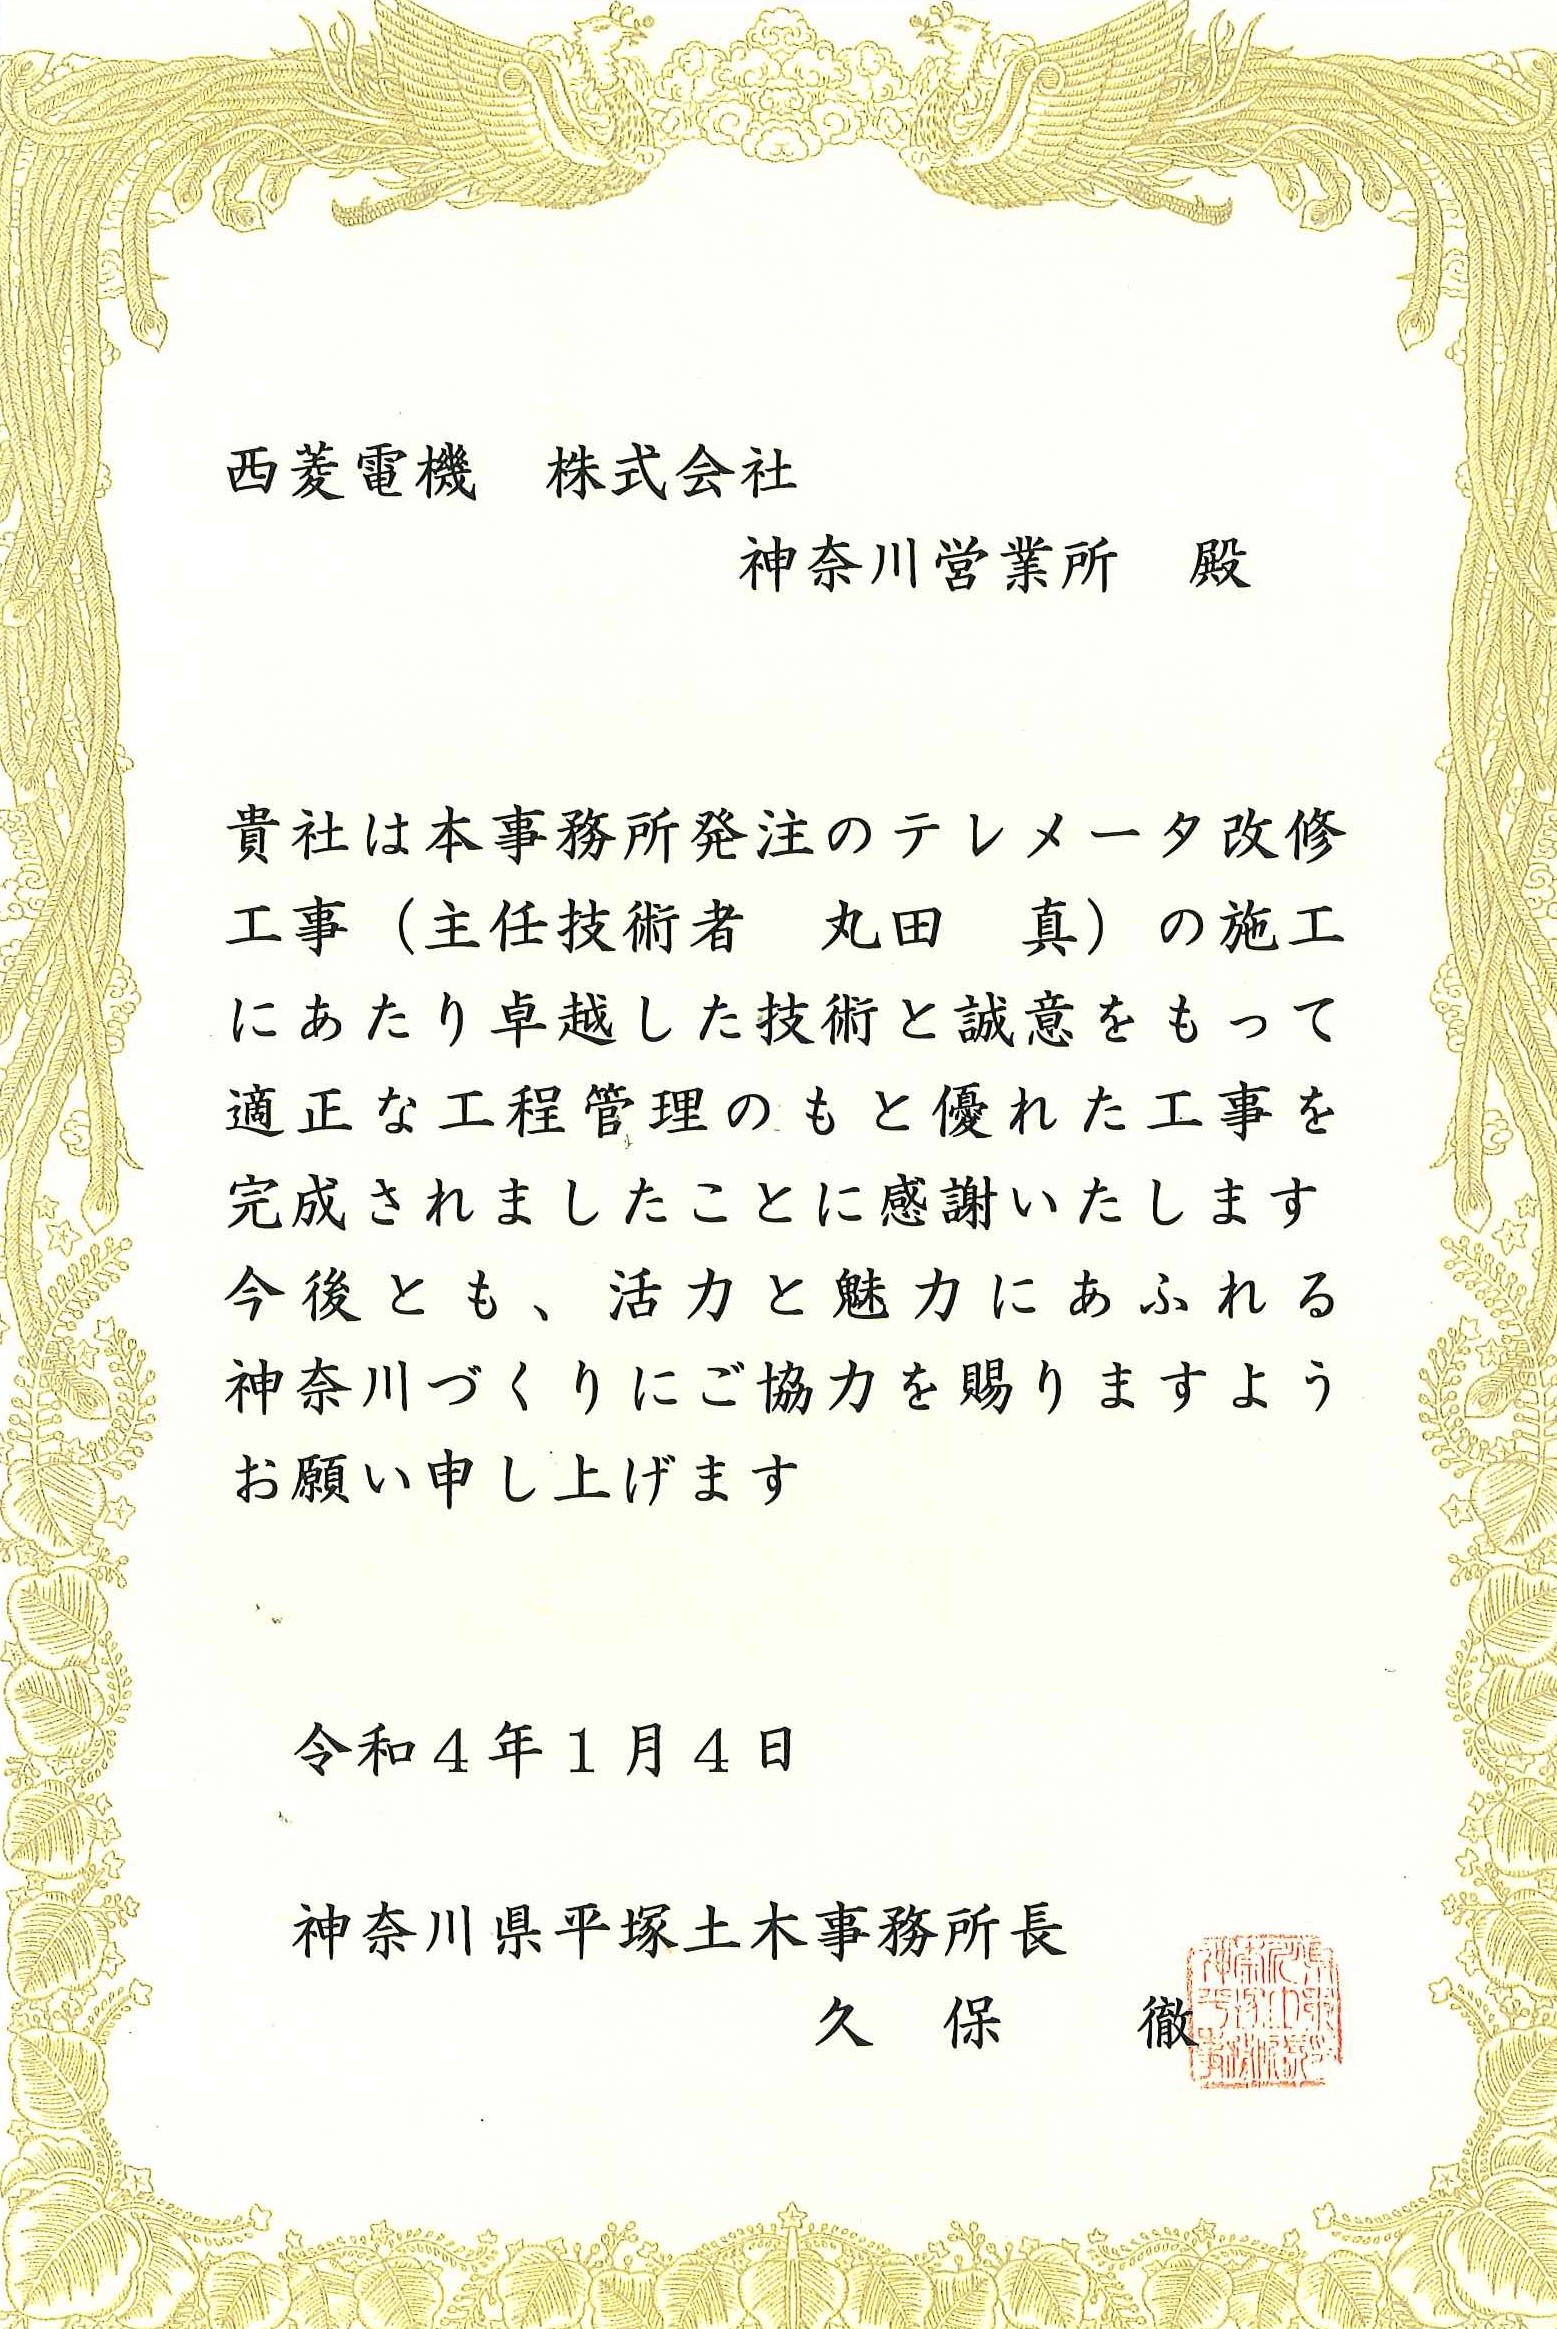 西菱電機　株式会社
神奈川営業所　殿
貴社は本事務所発注のテレメータ改修
工事（主任技術者　丸田　真）の施工
にあたり卓越した技術と誠意をもって
適正な工程管理のもと優れた工事を
完成されましたことに感謝いたします
今後とも、活力と魅力にあふれる
神奈川づくりにご協力を賜りますよう
お願い申し上げます
令和４年１月４日
神奈川県平塚土木事務所長
久　保　　徹